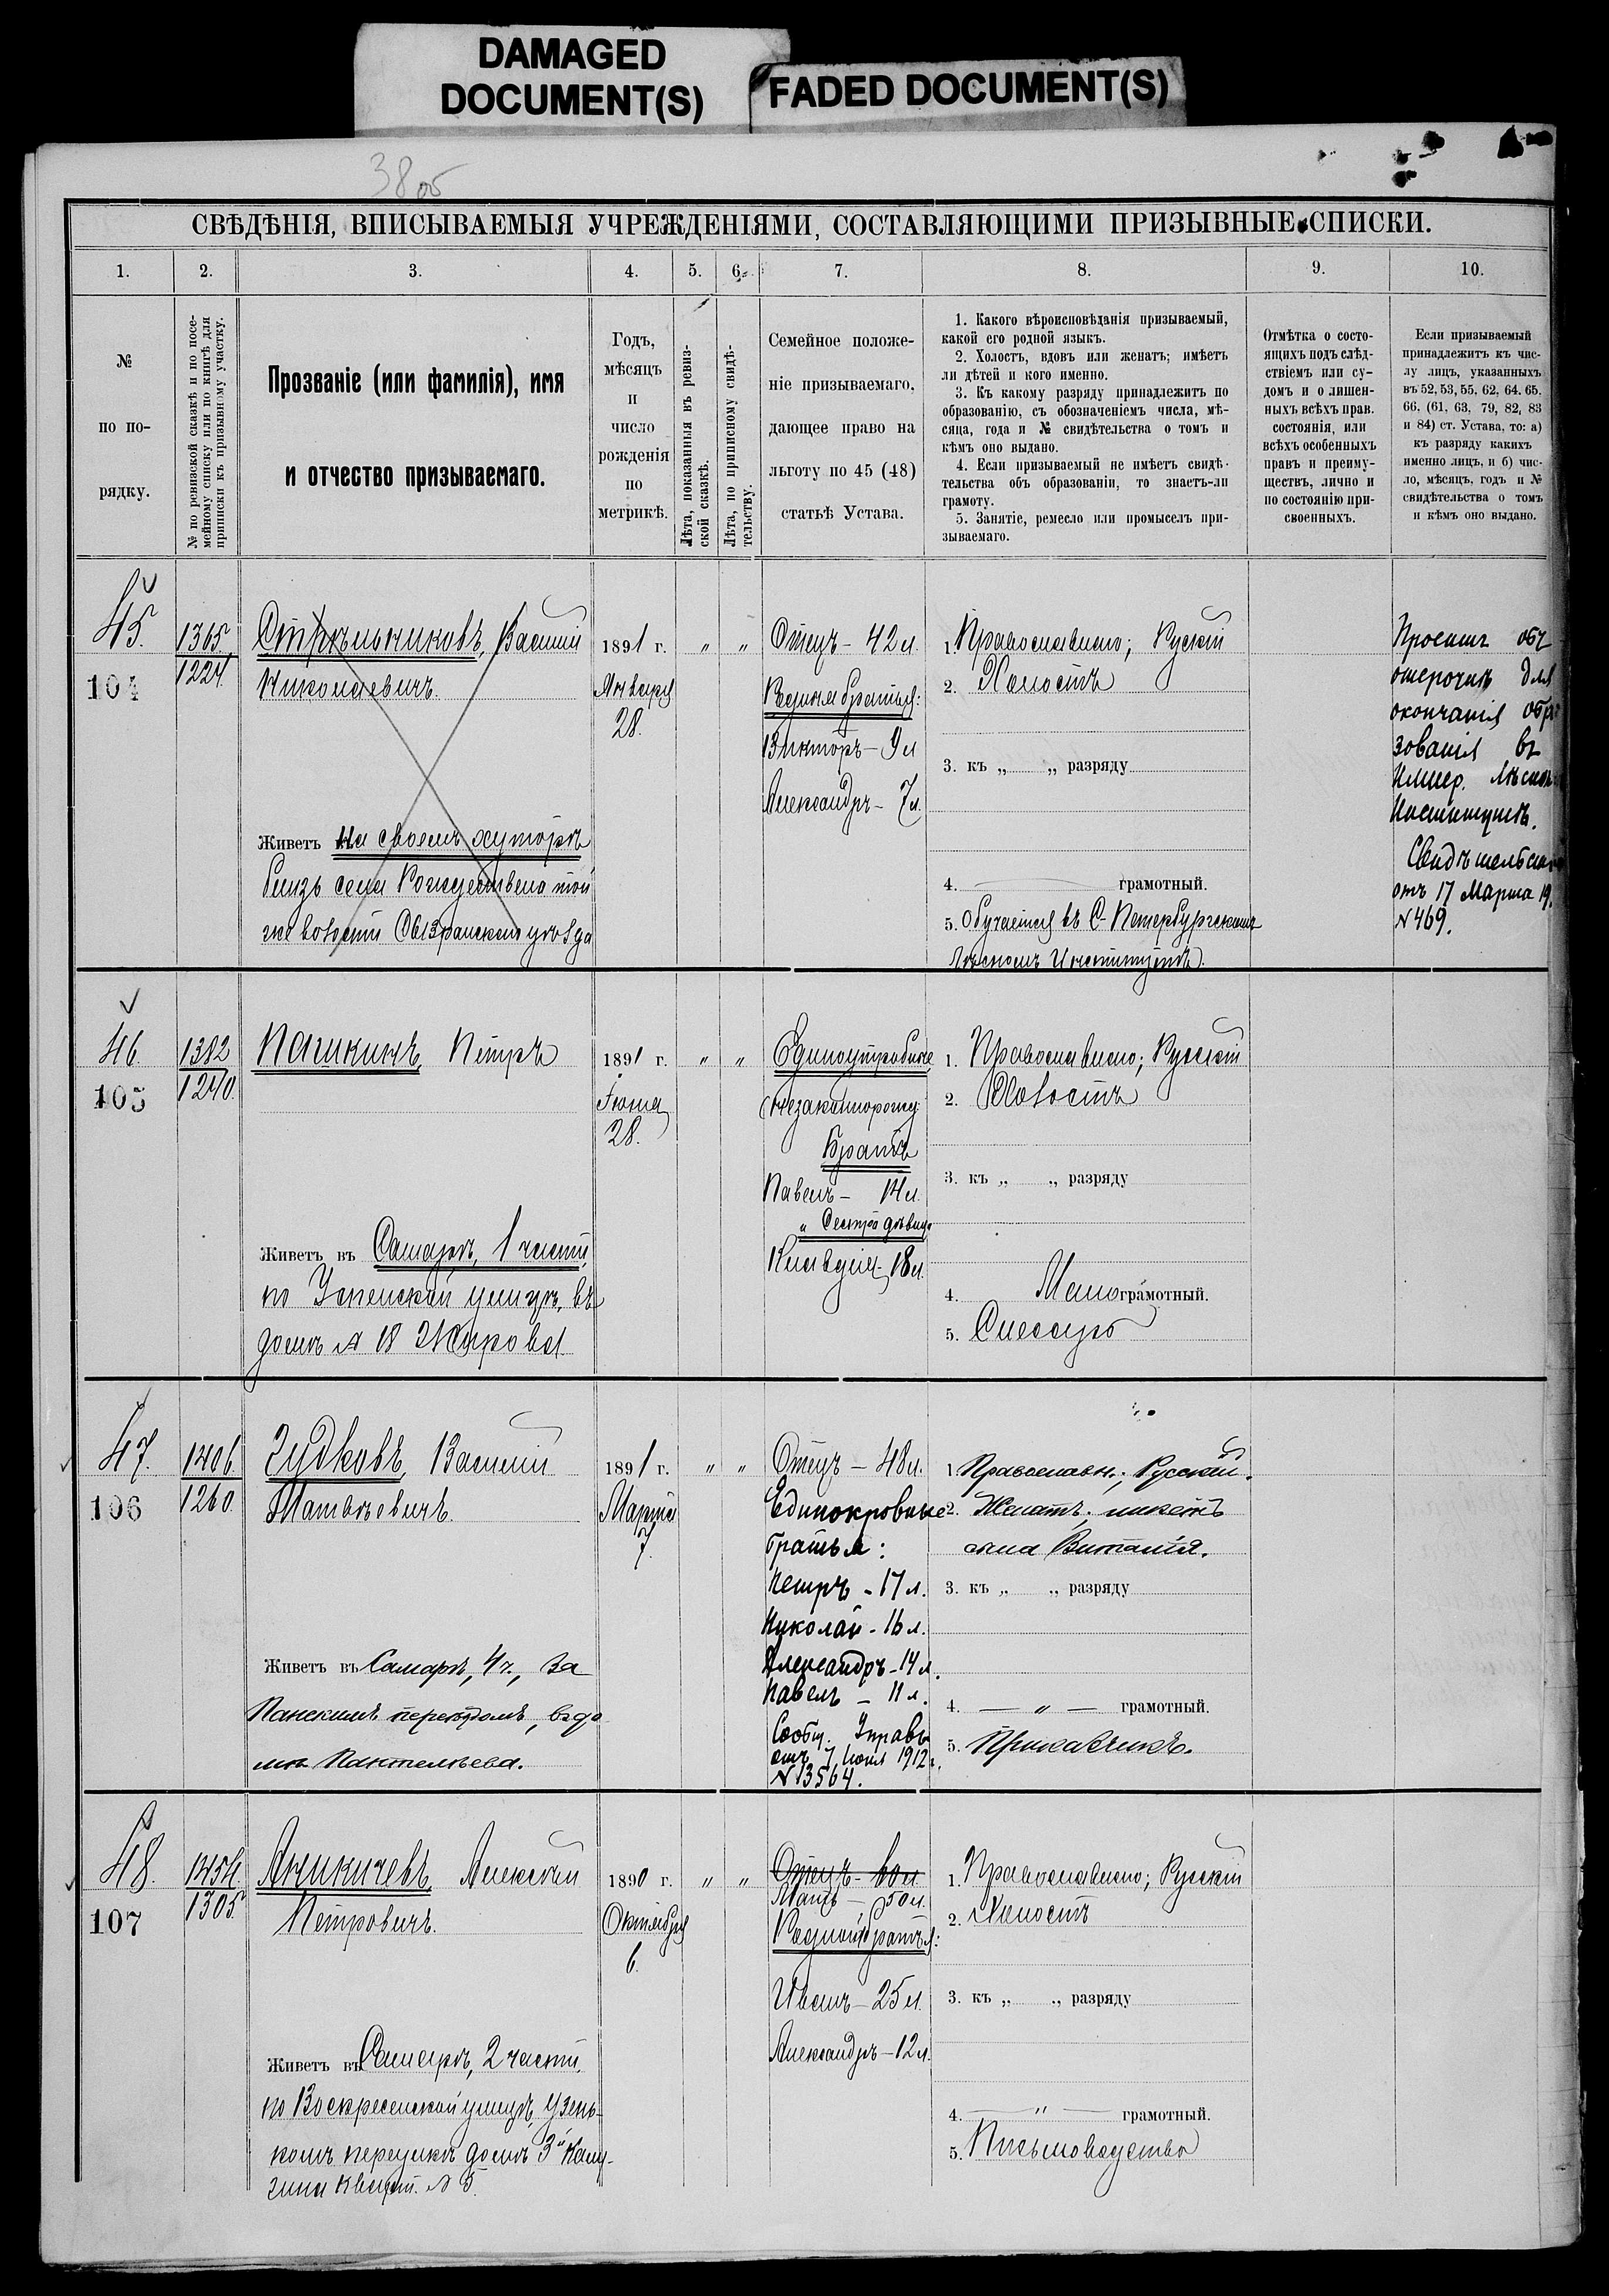 DAMAGED
DOCUMENT(S)
FADED DOCUMENT(S)
38 об
СВѢДѢНІЯ, ВПИСЫВАЕМЫЯ УЧРЕЖДЕНІЯМИ, СОСТАВЛЯЮЩИМИ ПРИЗЫВНЫЕ СПИСКИ.
1.
2.
3.
4.
5.
6.
7.
8.
9.
10.
№
по по-
рядку.
№ по ревизской сказкѣ и по посе-
мейному списку или по книгѣ для
приписки къ призывному участку.
Прозваніе (или фамилія), имя
и отчество призываемаго.
Годъ,
мѣсяцъ
и
число
рожденія
по
метрикѣ.
Лѣта, показанныя въ ревиз-
ской сказкѣ.
Лѣта, по приписному свидѣ-
тельству.
Семейное положе-
ніе призываемаго,
дающее право на
льготу по 45 (48)
статьѣ Устава.
1. Какого вѣроисповѣданія призываемый,
какой его родной языкъ.
2. Холостъ, вдовъ или женатъ; имѣетъ
ли дѣтей и кого именно.
3. Къ какому разряду принадлежитъ по
образованію, съ обозначеніемъ числа, мѣ-
сяца, года и № свидѣтельства о томъ и
кѣмъ оно выдано.
4. Если призываемый не имѣетъ свидѣ-
тельства объ образованіи, то знаетъ-ли
грамоту.
5. Занятіе, ремесло или промыселъ при-
зываемаго.
Отмѣтка о состо-
ящихъ подъ слѣд-
ствіемъ или су-
домъ и о лишен-
ныхъ всѣхъ прав.
состоянія, или
всѣхъ особенныхъ
правъ и преиму-
ществъ, лично и
по состоянію при-
своенныхъ.
Если призываемый
принадлежитъ къ чис-
лу лицъ, указанныхъ
въ 52, 53, 55, 62, 64. 65.
66. (61, 63, 79, 82, 83
и 84) ст. Устава, то: а)
къ разряду какихъ
именно лицъ, и б) чис-
ло, мѣсяцъ, годъ и №
свидѣтельства о томъ
и кѣмъ оно выдано.
45.
104
1365
1224.
Стрѣльниковъ, Василій
Николаевичъ.
Живетъ на своемъ хуторѣ
близь села Рождествено той
же волости Сызранскаго уѣзда
1891 г.
Января
28.
„
„
Отецъ - 42 л.
Родные братья:
Викторъ - 9 л
Александръ - 7 л.
1. Православное; Рускій
2. Холостъ
3. къ „ „ разряду
4. грамотный.
5. Обучается въ С-Петербургскомъ
Лѣсномъ Институтѣ.
Проситъ объ
отсрочкѣ для
окончанія обра
зованія въ
Импер. Лѣсномъ
Институтѣ.
Свидѣтельство
отъ 17 Марта 19
№ 469.
46.
105
1382
1240.
Пашкинъ, Петръ
Живетъ въ Самарѣ, 1 части,
по Успенской улицѣ, въ
домѣ № 18 Жирова
1891 г.
Іюня
28.
„
„
Единоутробные
(незаконорожд.
Братъ
Павелъ - 14 л.
„ Сестра дѣвица
Клавдія - 18 л.
1. Православное; Русскій
2. Холостъ
3. къ „ „ разряду
4. Мало грамотный.
5. Слесарь
47.
106
1406
1260.
Гудковъ, Василій
Матвѣевичъ.
Живетъ въ Самарѣ, 4 ч., за
Панскимъ переѣздомъ, въ до
мѣ Пантелѣева.
1891 г.
Марта
7.
„
„
Отецъ - 48 л.
Единокровные
братья:
Петръ - 17 л.
Николай - 16 л.
Александръ - 14 л.
Павелъ - 11 л.
Сообщ. Управы
отъ 7 Іюля 1912 г.
№ 13564.
1. Православн.; Русскій.
2. Женатъ; имѣетъ
сына Виталія.
3. къ „ „ разряду
4. — „ — грамотный.
5. Приказчикъ.
48.
107
1454.
1305.
Аникичевъ, Алексѣй
Петровичъ.
Живетъ въ Самарѣ, 2 части,
по Воскресенской улицѣ, Узень-
комъ переулкѣ домъ 3й
кварт. № 5.
1890 г.
Октября
6.
„
„
Отецъ - 60 л.
Мать - 50 л.
Родные братья:
Иванъ - 25 л.
Александръ - 12 л.
1. Православное; Русскій
2. Холостъ
3. къ „ „ разряду
4. — „ — грамотный.
5. Письмоводство